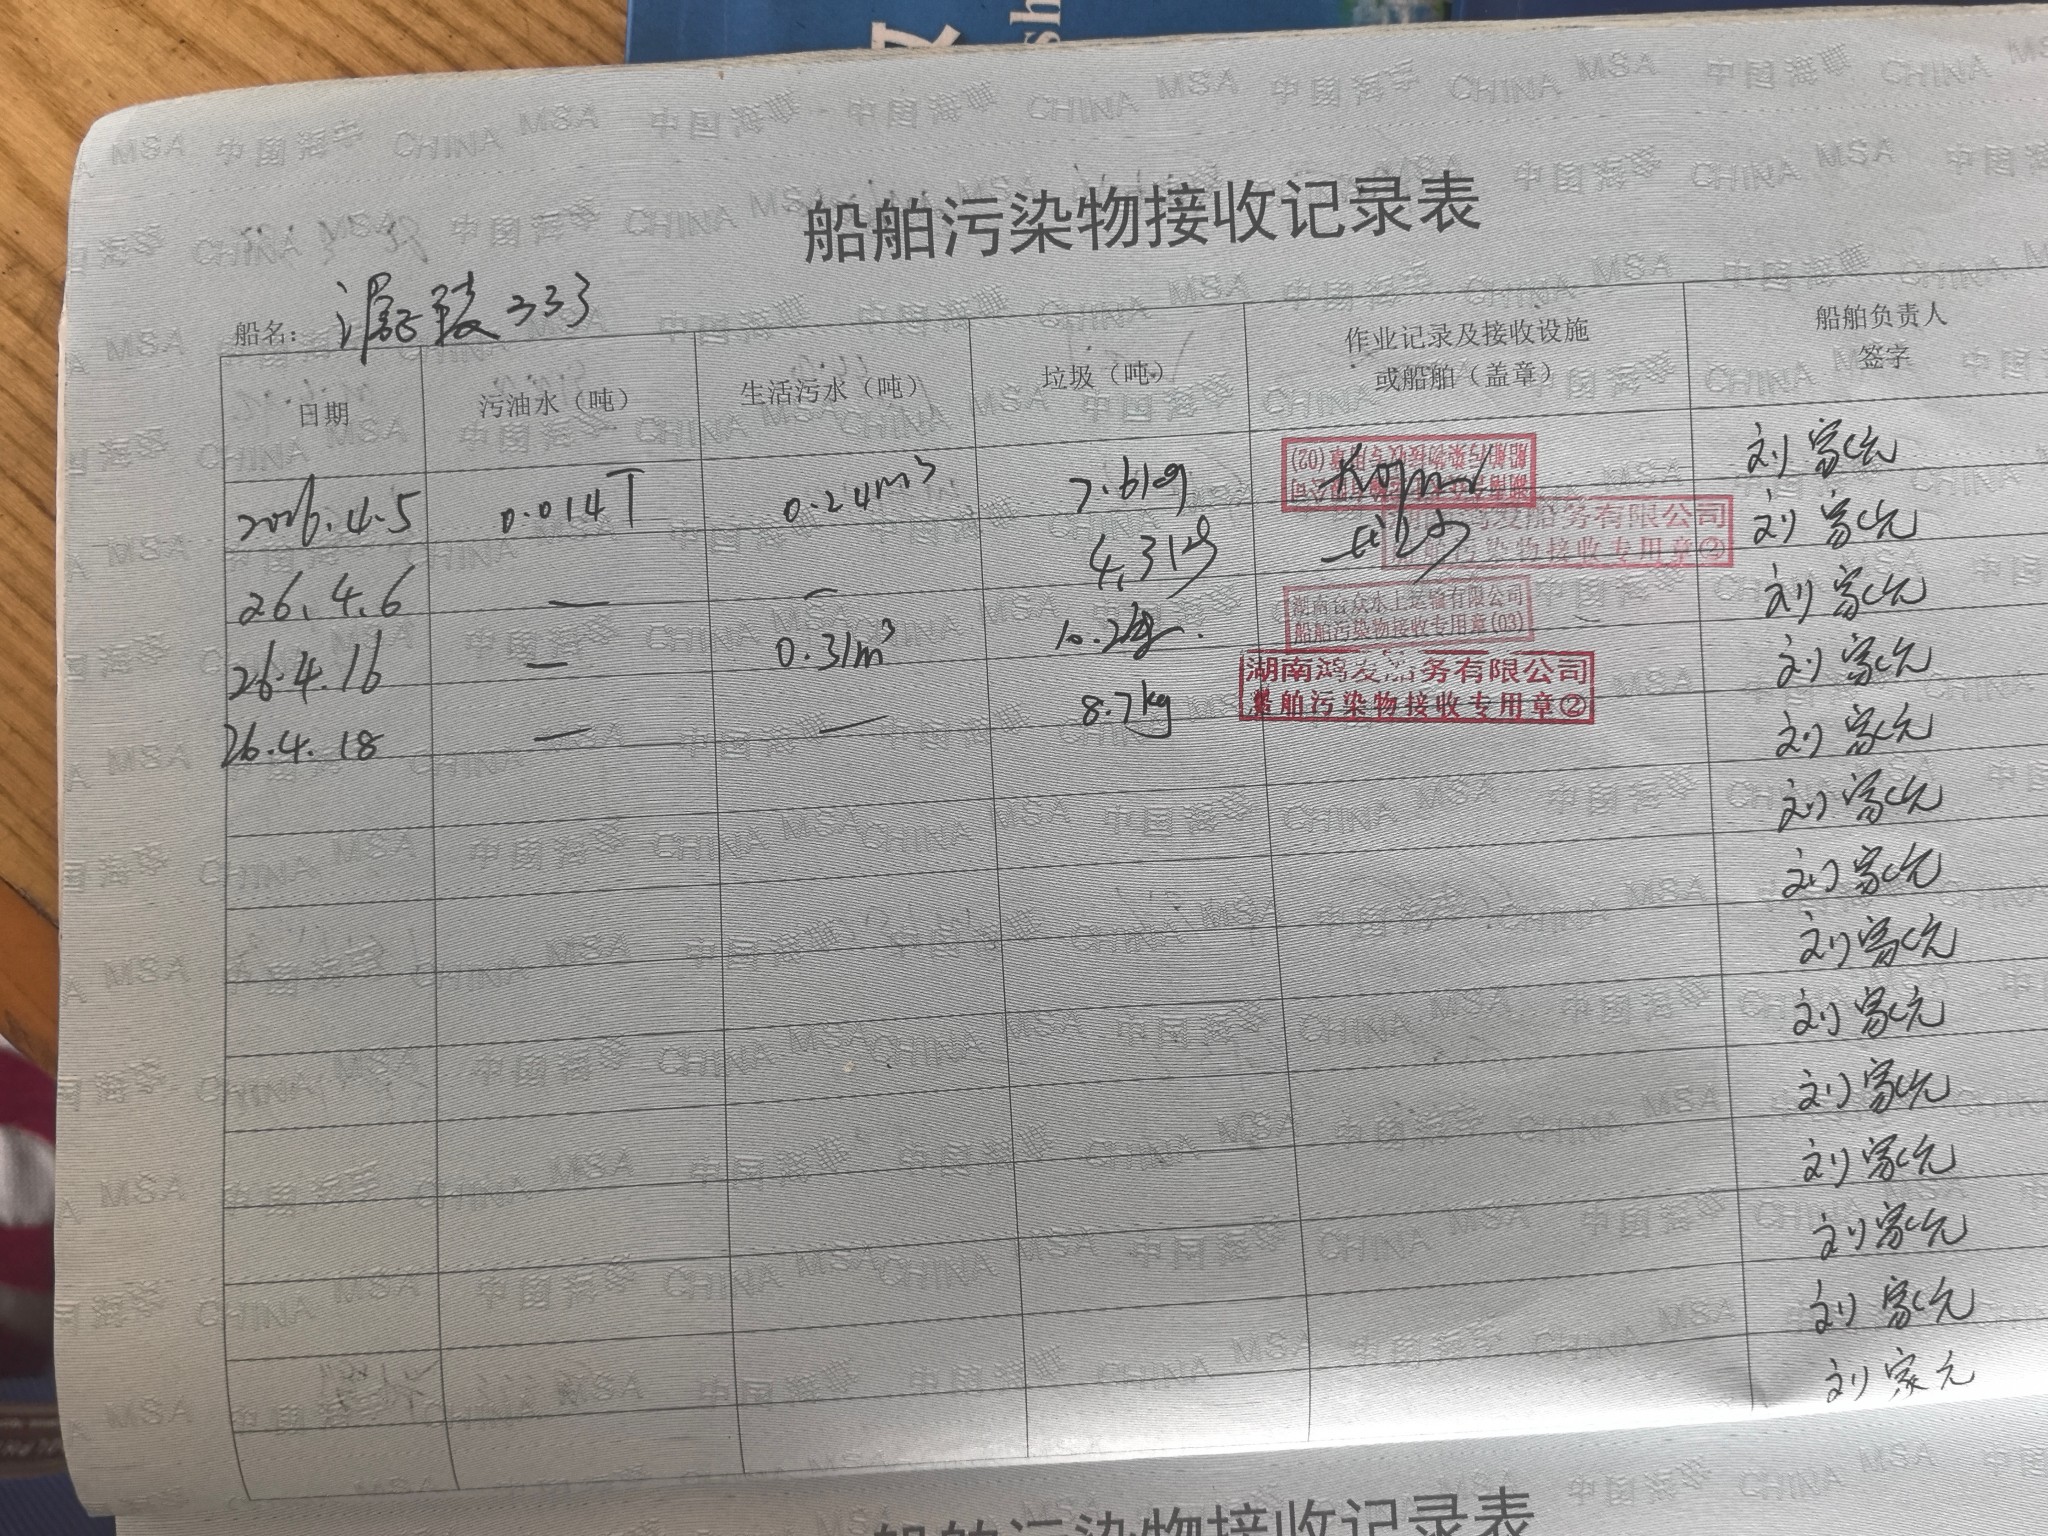 船舶污染物接收记录表
船名： 333
日期 污油水（吨） 生活污水（吨） 垃圾（吨） 作业记录及接收设施或船舶（盖章） 船舶负责人签字
2026.4.5 0.014T 0.24m³ 7.6kg 船舶污染物接收专用章(02) 刘家元
26.4.6 — — 4.3kg 务有限公司 污染物接收专用章② 刘家元
26.4.16 — 0.31m³ 10.2kg 水上运输有限公司 船舶污染物接收专用章(03) 刘家元
26.4.18 — — 8.7kg 湖南鸿发船务有限公司 船舶污染物接收专用章② 刘家元
刘家元
刘家元
刘家元
刘家元
刘家元
刘家元
刘家元
刘家元
刘家元
刘家元
船舶污染物接收记录表
中国海事 CHINA MSA